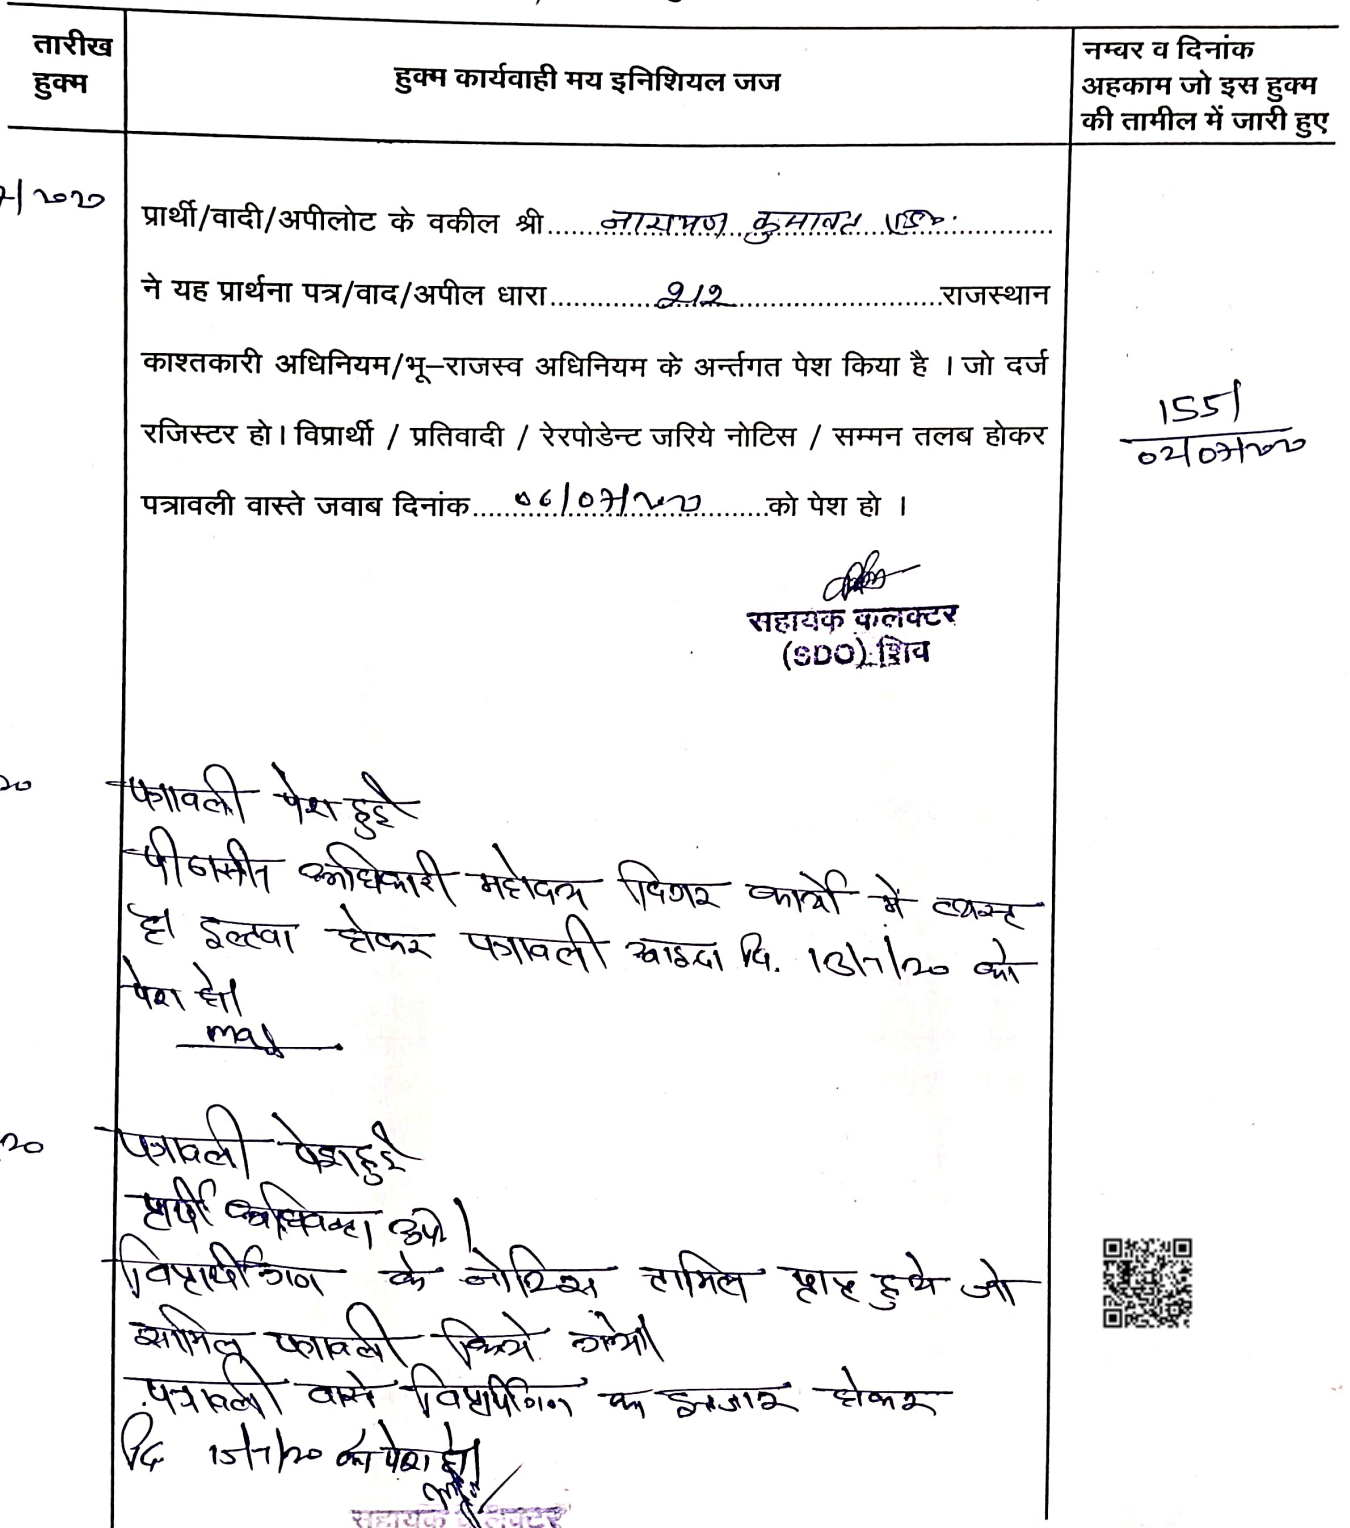 तारीख
हुक्म
हुक्म कार्यवाही मय इनिशियल जज
नम्वर व दिनांक
अहकाम जो इस हुक्म
की तामील में जारी हुए
प्रार्थी/वादी/अपीलोट के वकील श्री......नारायण कुमावत......
ने यह प्रार्थना पत्र/वाद/अपील धारा......212......राजस्थान
काश्तकारी अधिनियम/भू-राजस्व अधिनियम के अर्न्तगत पेश किया है । जो दर्ज
रजिस्टर हो। विप्रार्थी / प्रतिवादी / रेरपोडेन्ट जरिये नोटिस / सम्मन तलब होकर
पत्रावली वास्ते जवाब दिनांक......06/07/2020......को पेश हो ।
1551
02/07/2020
सहायक कलक्टर
(SDO) शिव
पत्रावली पेश हुई
अधिकारी महोदय दिगर कार्यो में व्यस्त
है। इल्तवा होकर पत्रावली आइन्दा दि. 13/7/20 को
पेश हो।
पत्रावली पेश हुई
प्रार्थी अधिवक्ता उप।
विप्रार्थीगण के नोटिस तामिल प्राप्त हुये जो
शामिल पत्रावली किये गये।
पत्रावली वास्ते विप्रार्थीगण का इन्तजार होकर
दि 15/7/20 को पेश हो।
सहायक कलक्टर